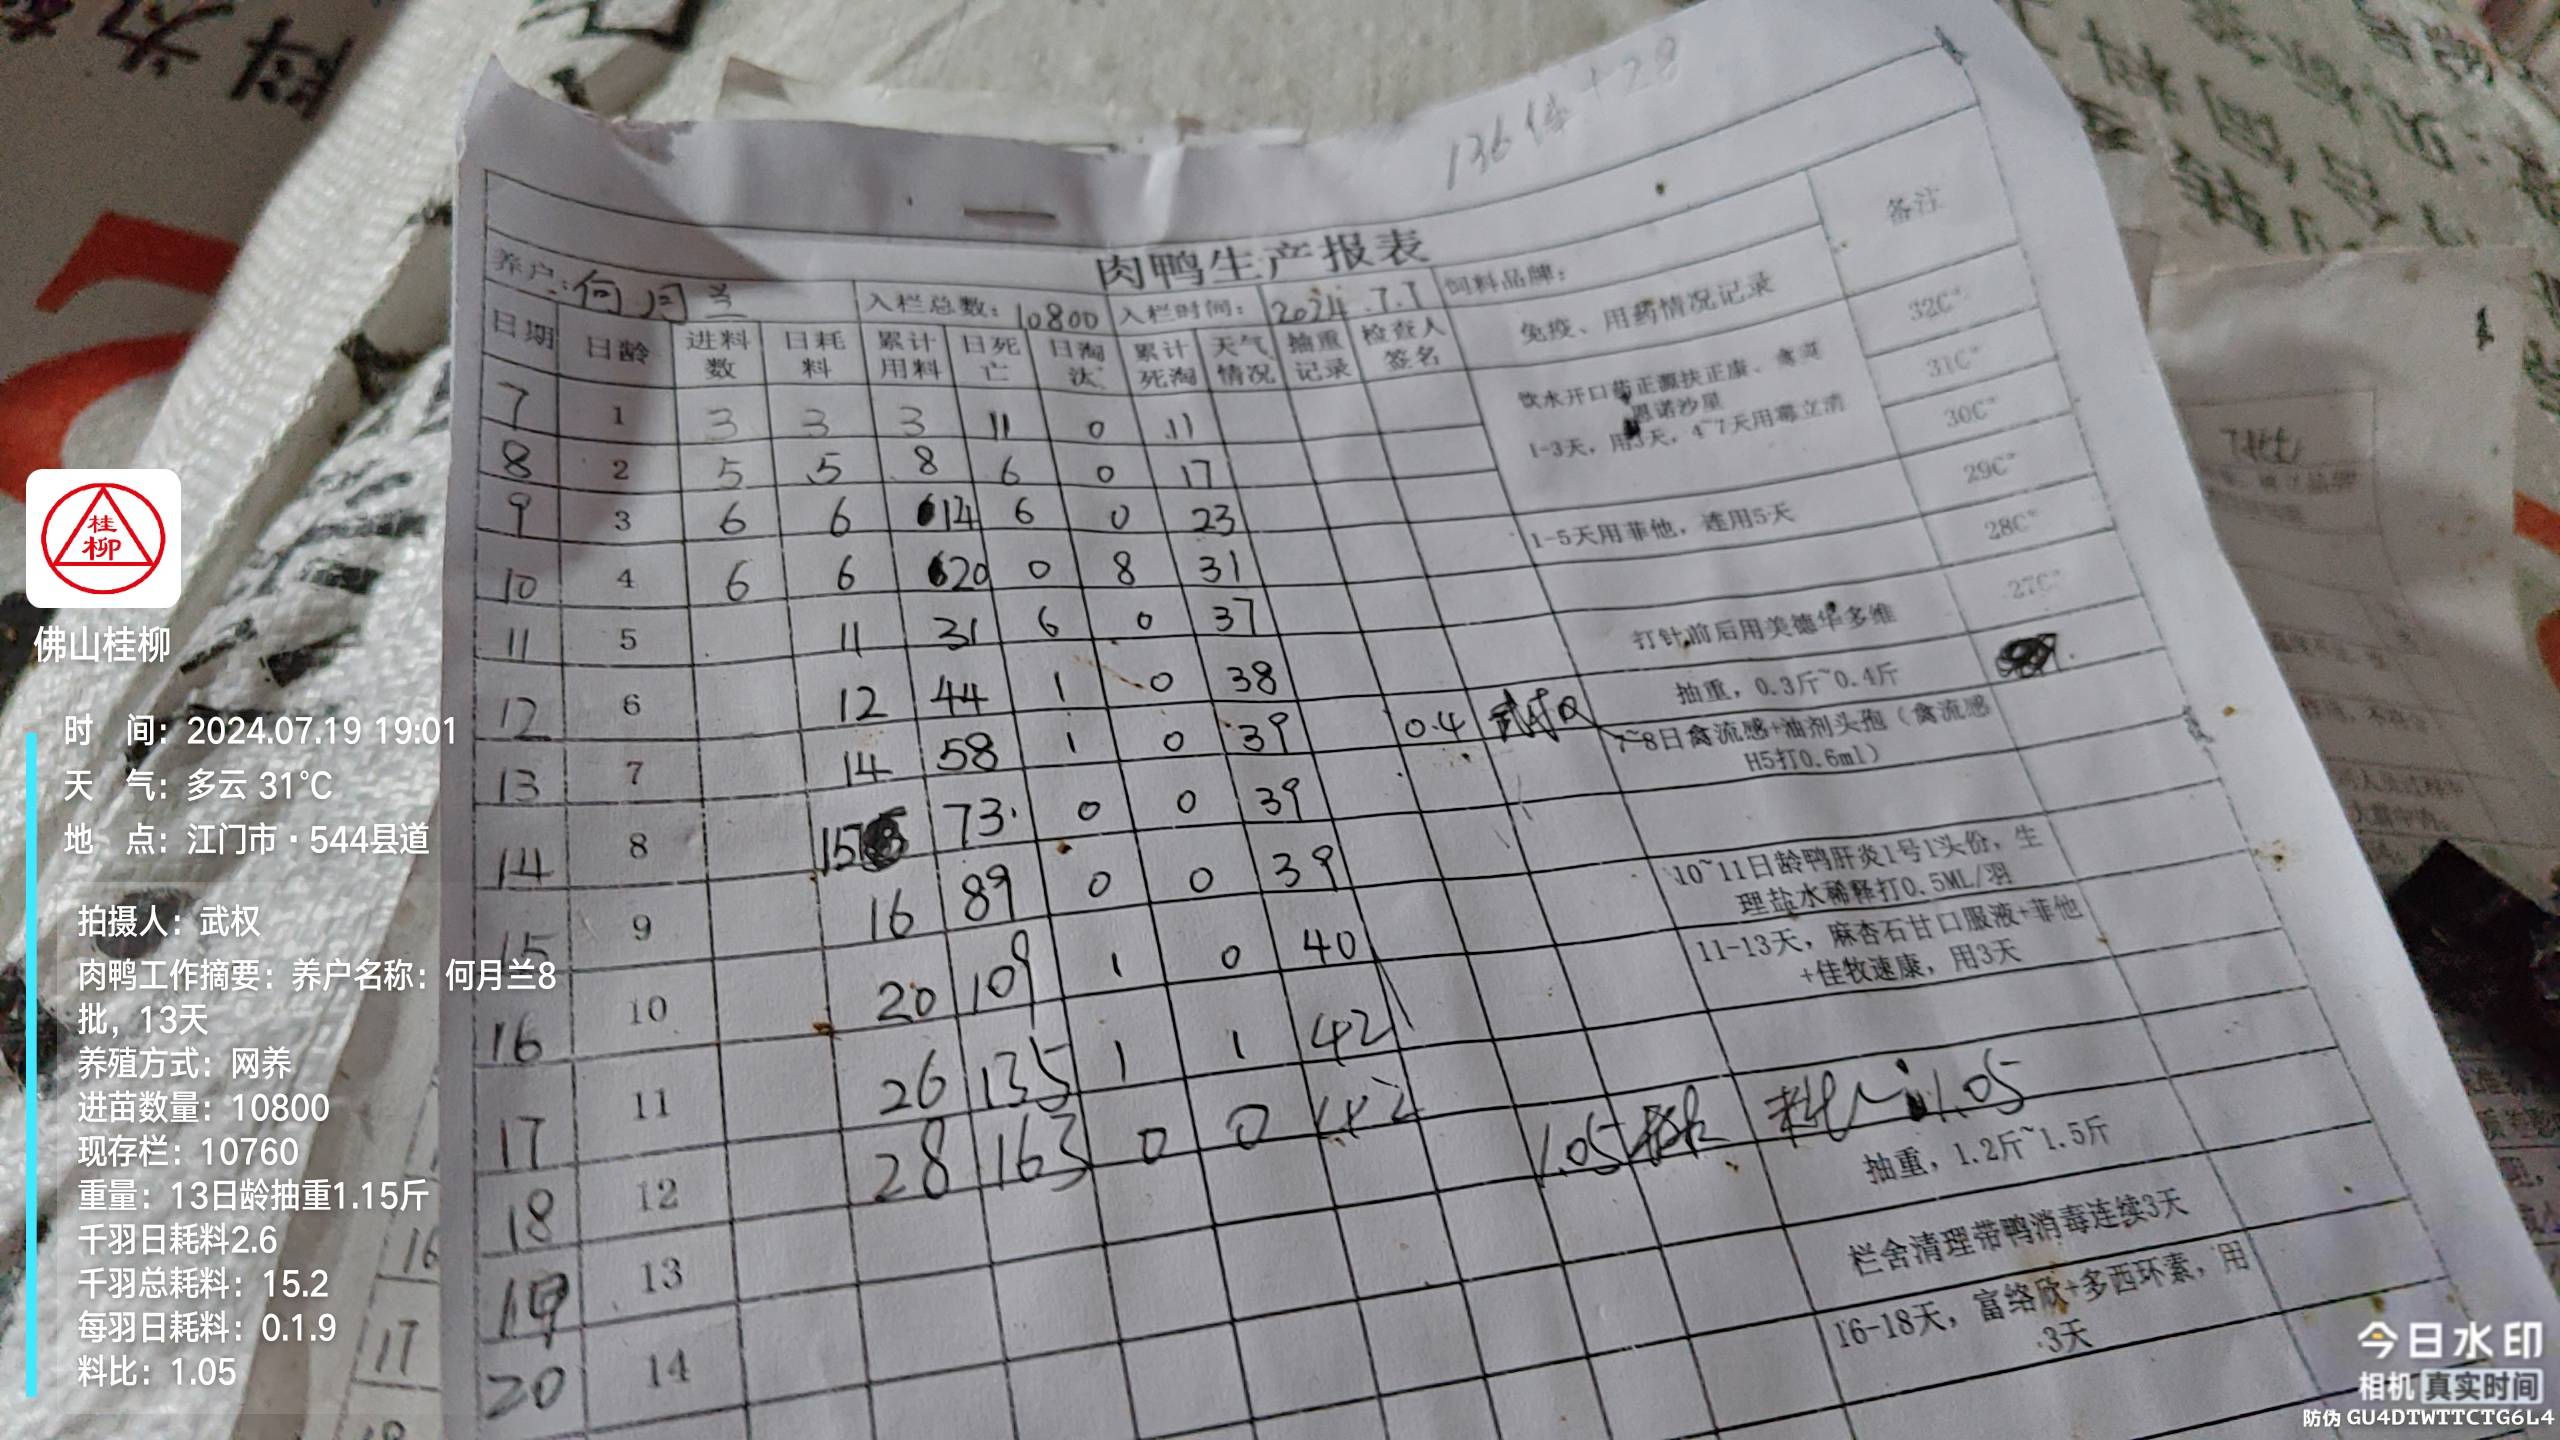 136件+28
肉鸭生产报表
养户:何月兰 入栏总数:10800 入栏时间: 2024.7.7 饲料品牌:
日期 日龄 进料数 日耗料 累计用料 日死亡 日淘汰 累计死淘 天气情况 抽重记录 检查人签名 免疫、用药情况记录 备注
7 1 3 3 3 11 0 11
8 2 5 5 8 6 0 17
9 3 6 6 14 6 0 23
10 4 6 6 20 0 8 31
11 5 11 31 6 0 37
12 6 12 44 1 0 38
13 7 14 58 1 0 39 0.4 武权
14 8 15 73. 0 0 39
15 9 16 89 0 0 39
16 10 20 109 1 0 40
17 11 26 135 1 1 42
18 12 28 163 0 0 42
19 13
20 14
32C°
31C°
30C°
29C°
28C°
27C°
饮水开口药正源扶正康、
恩诺沙星
1-3天，用3天，4~7天用霉立清
1-5天用菲他，连用5天
打针前后用美德华多维
抽重，0.3斤~0.4斤
7~8日禽流感+油剂头孢（禽流感
H5打0.6ml）
10~11日龄鸭肝炎1号1头份，生
理盐水稀释打0.5ML/羽
11-13天，麻杏石甘口服液+菲他
+佳牧速康，用3天
1.05 料比 1.05
抽重，1.2斤~1.5斤
栏舍清理带鸭消毒连续3天
16-18天，富络欣+多西环素，用
3天
桂柳
佛山桂柳
时 间：2024.07.19 19:01
天 气：多云 31℃
地 点：江门市·544县道
拍摄人：武权
肉鸭工作摘要：养户名称：何月兰8
批，13天
养殖方式：网养
进苗数量：10800
现存栏：10760
重量：13日龄抽重1.15斤
千羽日耗料2.6
千羽总耗料：15.2
每羽日耗料：0.1.9
料比：1.05
16
17
今日水印
相机 真实时间
防伪 GU4DTWTTCTG6L4